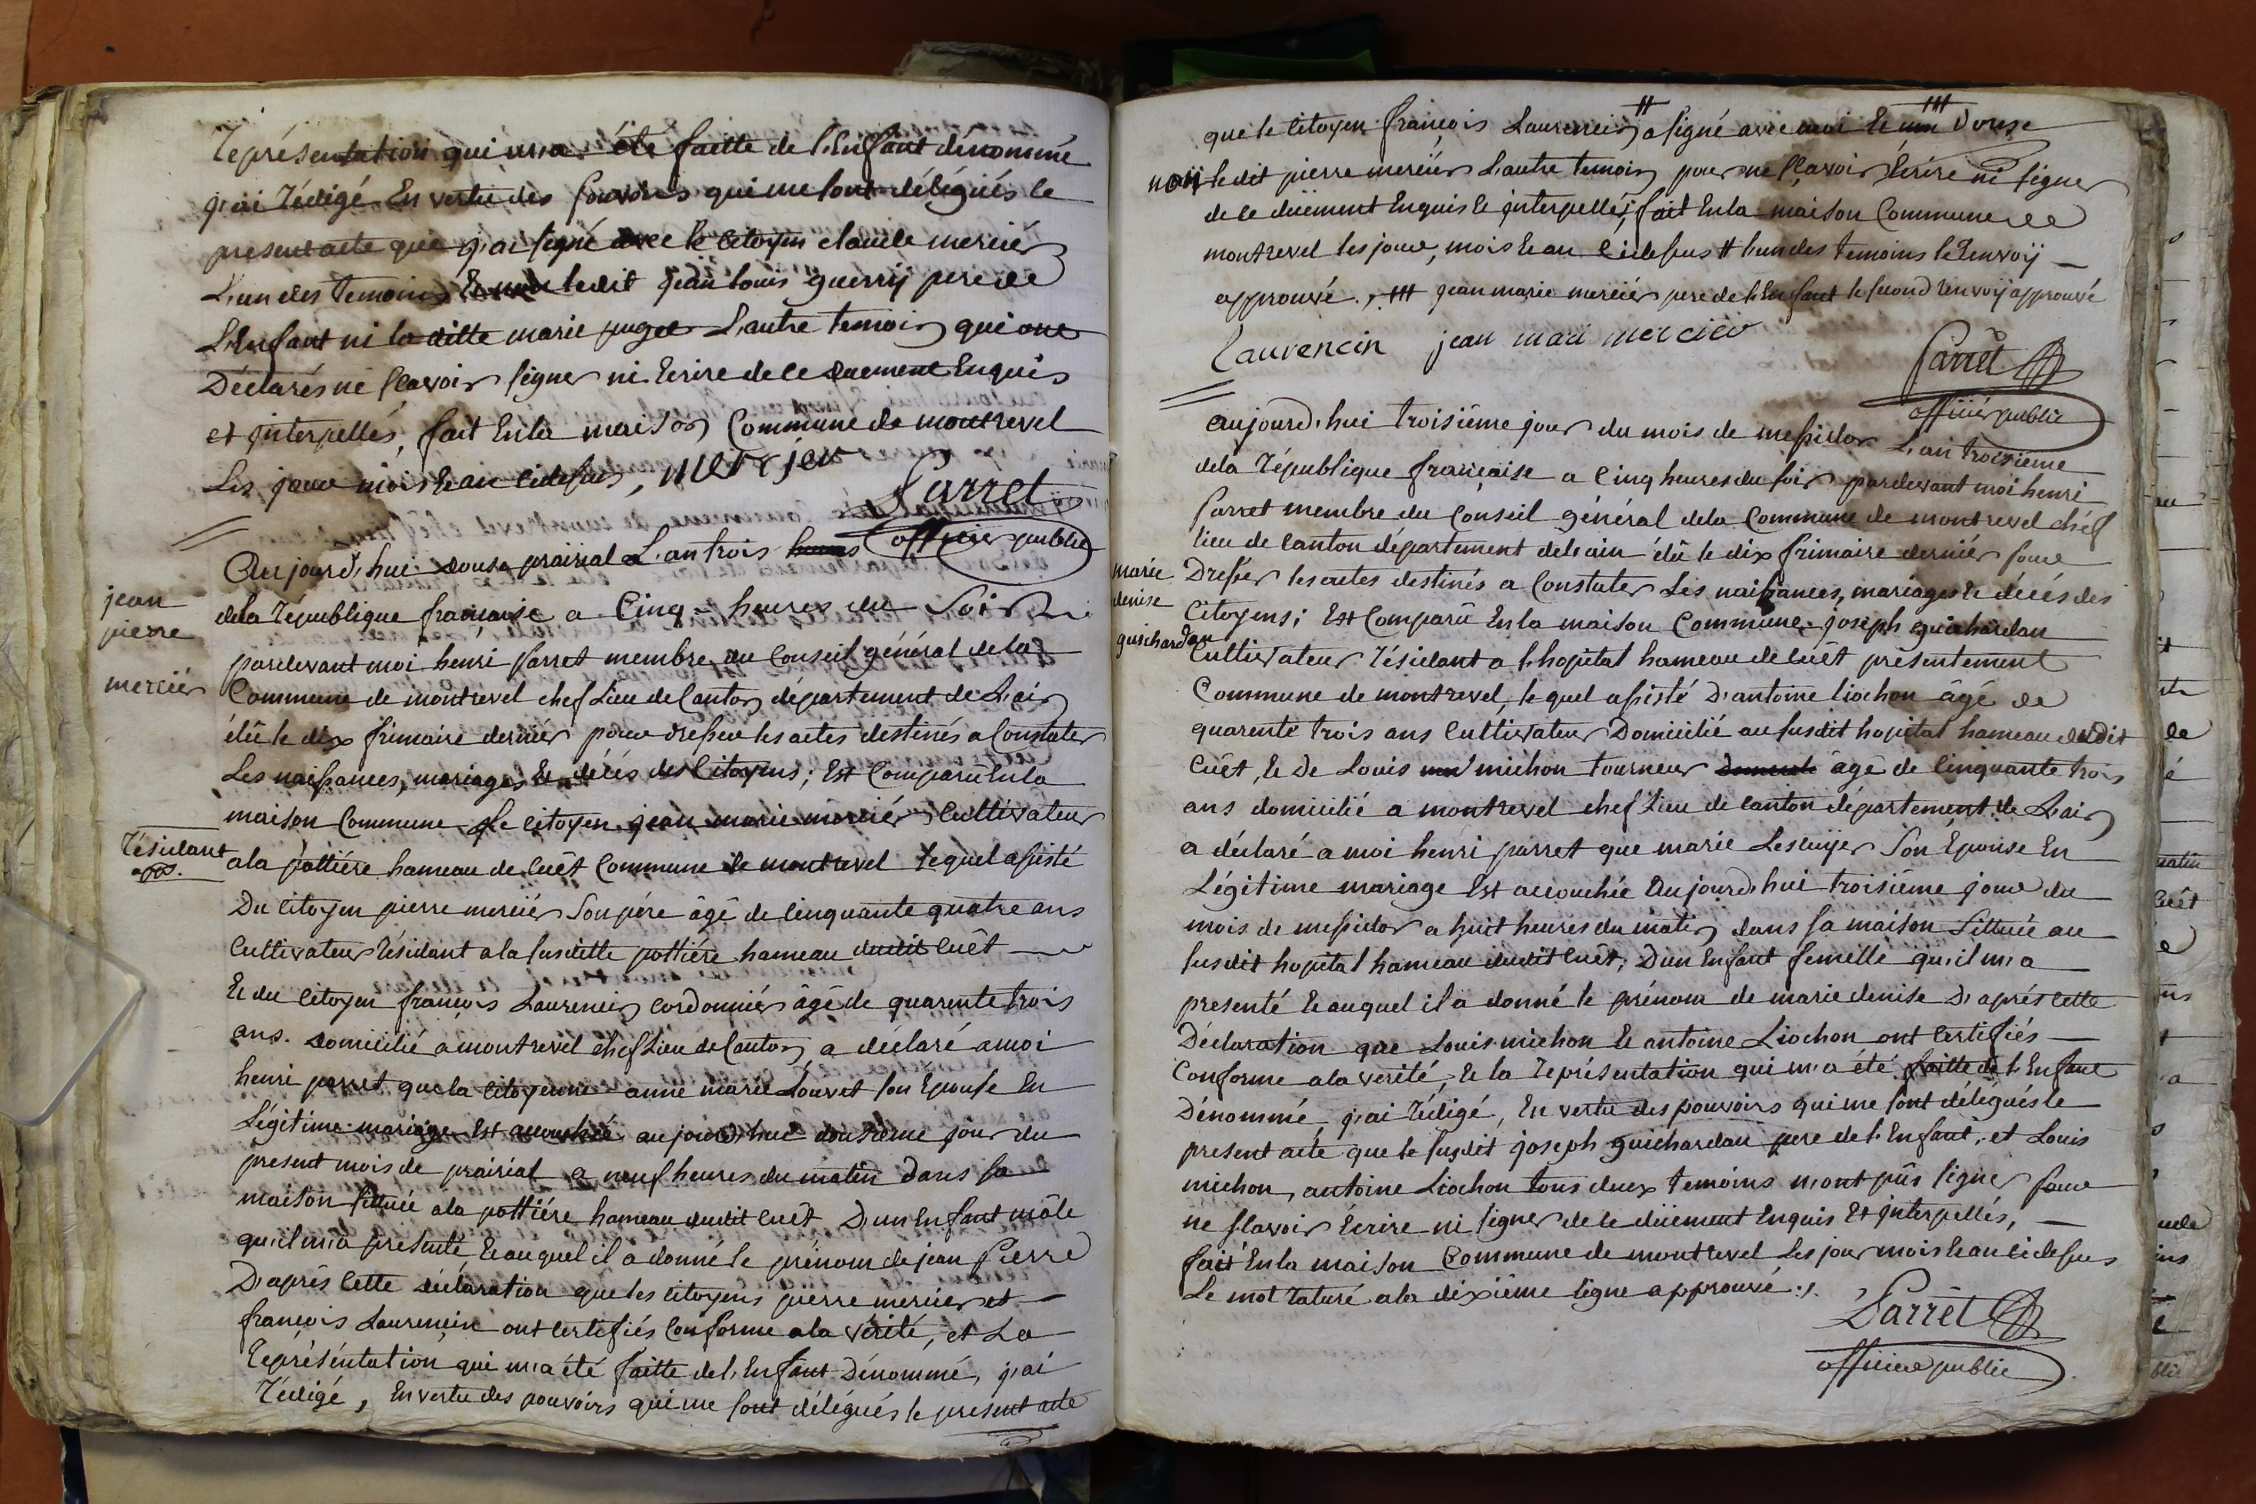 représentation qui m'a été faitte de l'Enfant dénommé
j'ai rédigé En vertu des pouvoirs qui me sont délégués le
present acte que j'ai signé avec le Citoyen claude mercier
L'un des temoins Et non ledit jean louis guerry pere de
L'Enfant ni la ditte marie puget L'autre temoin qui ont
Déclarés ne sçavoir signer ni Ecrire de ce duement Enquis
et interpellés, fait En la maison Commune de montrevel
Les jour mois Et an cidessus, mercier
Parret
officier public
Aujourd'hui douse prairial L'an trois
jean
pierre
mercier
dela république française a Cinq heures du Soir
pardevant moi henri parret membre du Conseil général dela
Commune de montrevel chef Lieu de Canton département de L'ain
élû le dix frimaire dernier pour dresser les actes destinés a Constater
Les naissances, mariages Et décés des Citoyens; Est Comparu En la
maison Commune le citoyen jean marie mercier, Cultivateur
résidant
app.
a la pottiére hameau de Cuêt Commune de montrevel lequel assisté
Du Citoyen pierre mercier Son pére âgé de Cinquante quatre ans
Cultivateur résidant a la susditte pottiére hameau dudit Cuêt
Et du Citoyen françois Laurencin Cordonnier âgé de quarente trois
ans. domicilié a montrevel chef Lieu de Canton a déclaré a moi
henri parret que la Citoyenne anne marie Louvet son Epouse En
Légitime mariage Est accouchée aujourd'hui douxiéme jour du
present mois de prairial a neuf heures du matin dans sa
maison sittuée a la pottiére hameau dudit Cuêt D'un Enfant mâle
qu'il m'a présenté, Et auquel il a donné le prénom de jean Pierre
D'aprés Cette déclaration que les citoyens pierre mercier et
françois Laurencin ont certifiés Conforme a la vérité, et La
représéntation qui m'a été faitte de l'Enfant Dénommé, j'ai
rédigé, En vertu des pouvoirs qui me sont délégués le present acte
que le Citoyen françois Laurencin # a signé avec moi Et non ### Douse
non ledit pierre mercier L'autre temoin pour ne sçavoir Ecrire ni signer
de ce düement Enquis Et interpellés; fait En la maison Commune de
montrevel les jour, mois Et an cidessus # l'un des temoins le Renvoÿ
approuvé. ### jean marie mercier pere de l'Enfant le second renvoÿ approuvé
Laurencin jean mari mercier
Parret
officier public
aujourd'hui troisiême jour du mois de messidor L'an troisieme
dela république française a Cinq heures du soir pardevant moi henri
Parret membre du Conseil général dela Commune de montrevel chéf
lieu de canton département de l'ain élû le dix frimaire dernier pour
marie
denise
guichardan
Dresser les actes destinés a Constater Les naissances, mariages Et décés des
Citoyens; Est Comparû En la maison Commune, joseph guichardan
Cultivateur résidant a l'hopital hameau de Cuêt présentement
Commune de montrevel, lequel assisté D'antoine liochon âgé de
quarente trois ans Cultivateur Domicilié au susdit hopital hameau dudit
Cuêt, Et De Louis michon tourneur âgé de Cinquante trois
ans domicilié a montrevel chef Lieu de canton département de L'ain
a déclaré a moi henri parret que marie Lescuyer Son Epouse En
Légitime mariage Est accouchée Aujourd'hui troisiême jour du
mois de messidor a huit heures du matin dans sa maison Sittuée au
susdit hopital hameau dudit Cuêt; D'un Enfant femelle qu'il m'a
presenté Et auquel il a donné le prénom de marie denise D'aprés Cette
Déclaration que Louis michon Et antoine Liochon ont Certifiés
Conforme a la verité, Et la représentation qui m'a été faitte de l'Enfant
Dénommé, j'ai rédigé, En vertu des pouvoirs qui me sont délégués le
present acte que le susdit joseph guichardan pere de l'Enfant, et Louis
michon, antoine Liochon tous deux temoins n'ont pûs signer pour
ne sçavoir Ecrire ni signer de ce düement Enquis Et interpellés,
fait En la maison Commune de montrevel Les jour mois Et an cidessus
Le mot raturé a la dixiême ligne approuvé ./.
Parret
officier public